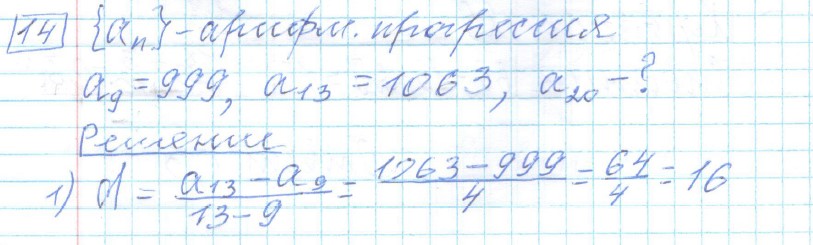 14 {aₙ} - арифм. прогрессия
a₉ = 999, a₁₃ = 1063, a₂₀ - ?
Решение
1) d = (a₁₃ - a₉)/(13 - 9) = (1063 - 999)/4 = 64/4 = 16